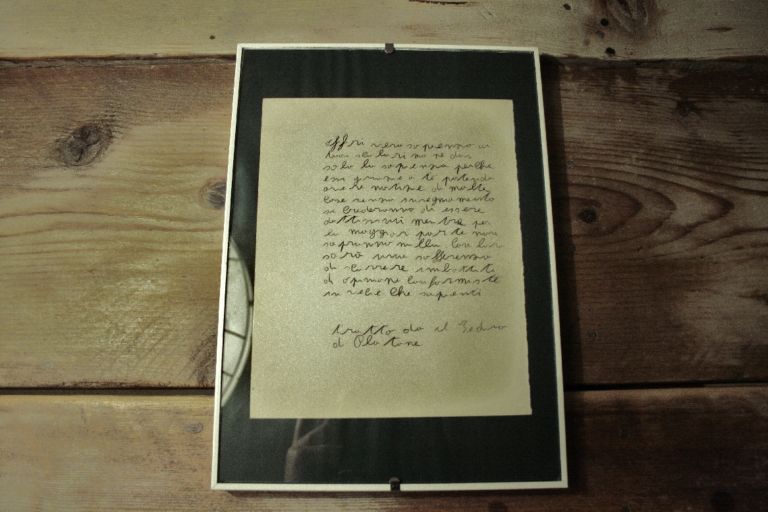 Essi vero sapienza
solo la sapienza perché
essi grazie a te potendo
avere notizie di molte
cose senza insegnamento
si crederanno di essere
dottissimi mentre per
la maggior parte non
sapranno nulla con loro
sarà una sofferenza
di
di opinione conformiste
in veče che sapienti
tratto da il Fedro
di Platone